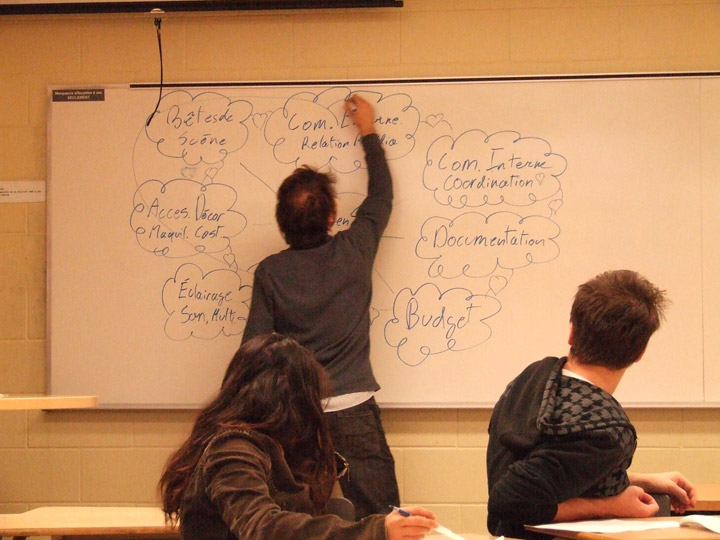 Bêtes de
Scène
Com.
Relation
Com. Interne
Coordination
Acces. Décor
Maquil. Cost.
Documentation
Éclairage
Son, Multi
Budget